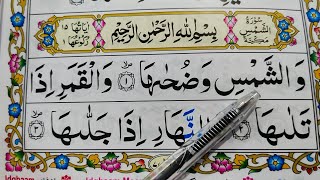 سُورَةُ الشَّمْسِ مَكِّيَّةٌ
بِسْمِ اللهِ الرَّحْمٰنِ الرَّحِيْمِ
اٰيَاتُهَا ١٥
رُكُوْعُهَا ١
وَالشَّمْسِ وَضُحٰىهَا ۝١ وَالْقَمَرِ اِذَا
تَلٰىهَا ۝٢ النَّهَارِ اِذَا جَلّٰىهَا ۝٣